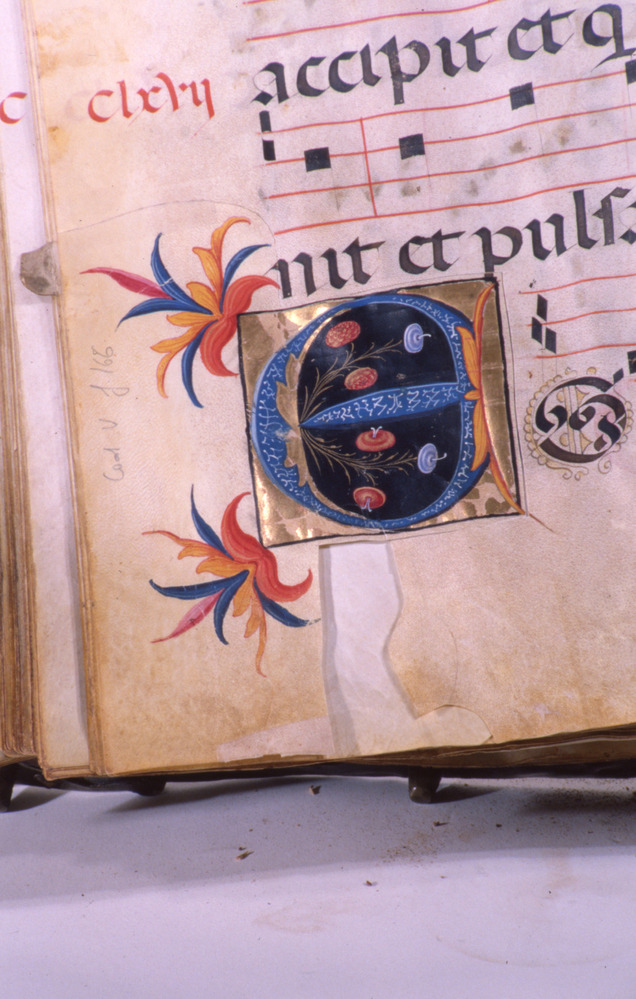 c clxvij
accipit et q
nit et puls
E S
Cod V f 165